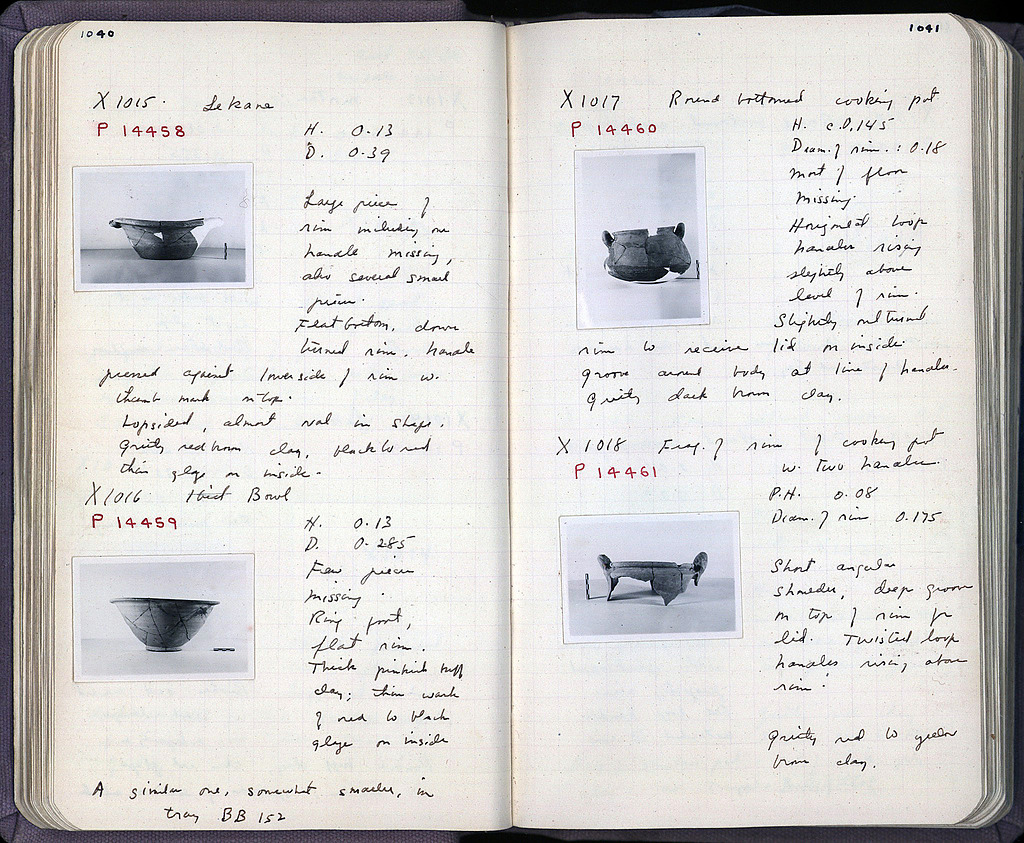 1040
X 1015. Lekane
P 14458
H. 0.13
D. 0.39
Large piece of
rim including one
handle missing,
also several small
pieces.
Flat bottom, down
turned rim, handle
pressed against lower side of rim w.
thumb mark on top.
Lopsided, almost oval in shape.
Gritty red brown clay, black to red
thin glaze on inside.
X 1016 Thick Bowl
P 14459
H. 0.13
D. 0.285
Few pieces
missing.
Ring foot,
flat rim.
Thick pinkish buff
clay; thin wash
of red to black
glaze on inside
A similar one, somewhat smaller, in
tray BB 152
1041
X 1017 Round bottomed cooking pot
P 14460
H. c.0.145
Diam. of rim.: 0.18
most of floor
missing.
Horizontal loop
handles rising
slightly above
level of rim.
Slightly outturned
rim to receive lid on inside.
groove around body at line of handles.
Gritty dark brown clay.
X 1018 Frag. of rim of cooking pot
w. two handles.
P 14461
P.H. 0.08
Diam. of rim 0.175
Short angular
shoulder, deep groove
on top of rim for
lid. Twisted loop
handles rising above
rim.
Gritty red to yellow
brown clay.